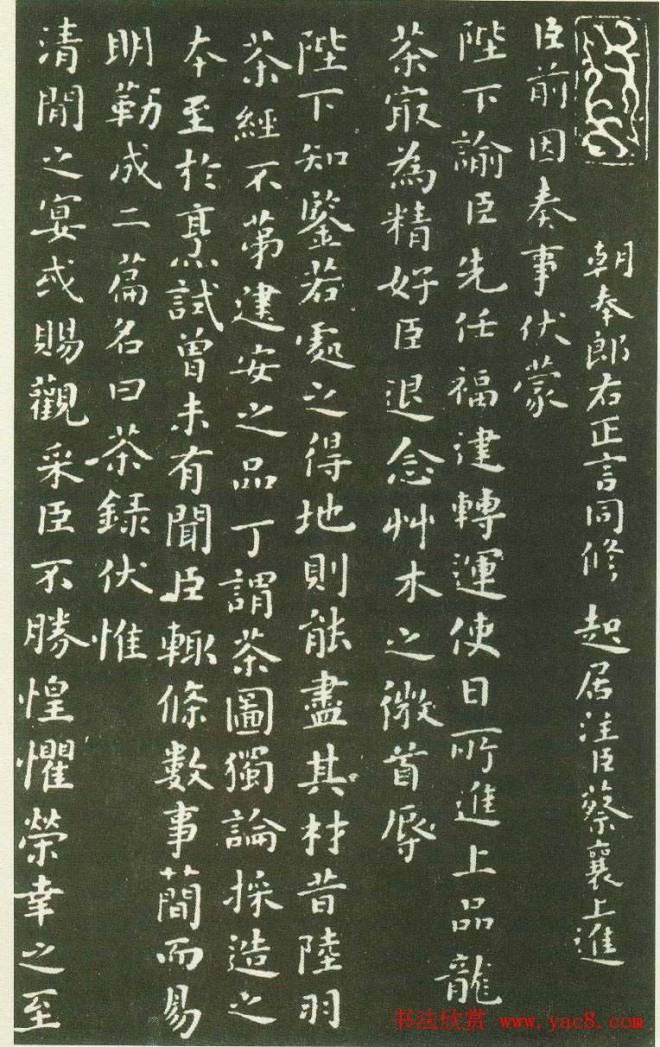 朝奉郎右正言同修起居注臣蔡襄上進
臣前因奏事伏蒙
陛下諭臣先任福建轉運使日所進上品龍
茶㝡為精好臣退念艸木之微首辱
陛下知鑒若處之得地則能盡其材昔陸羽
茶經不苐建安之品丁謂茶圖獨論採造之
本至於烹試曾未有聞臣輙條數事簡而易
明勒成二篇名曰茶錄伏惟
清閒之宴或賜觀采臣不勝惶懼榮幸之至
书法欣赏 www.yac8.com